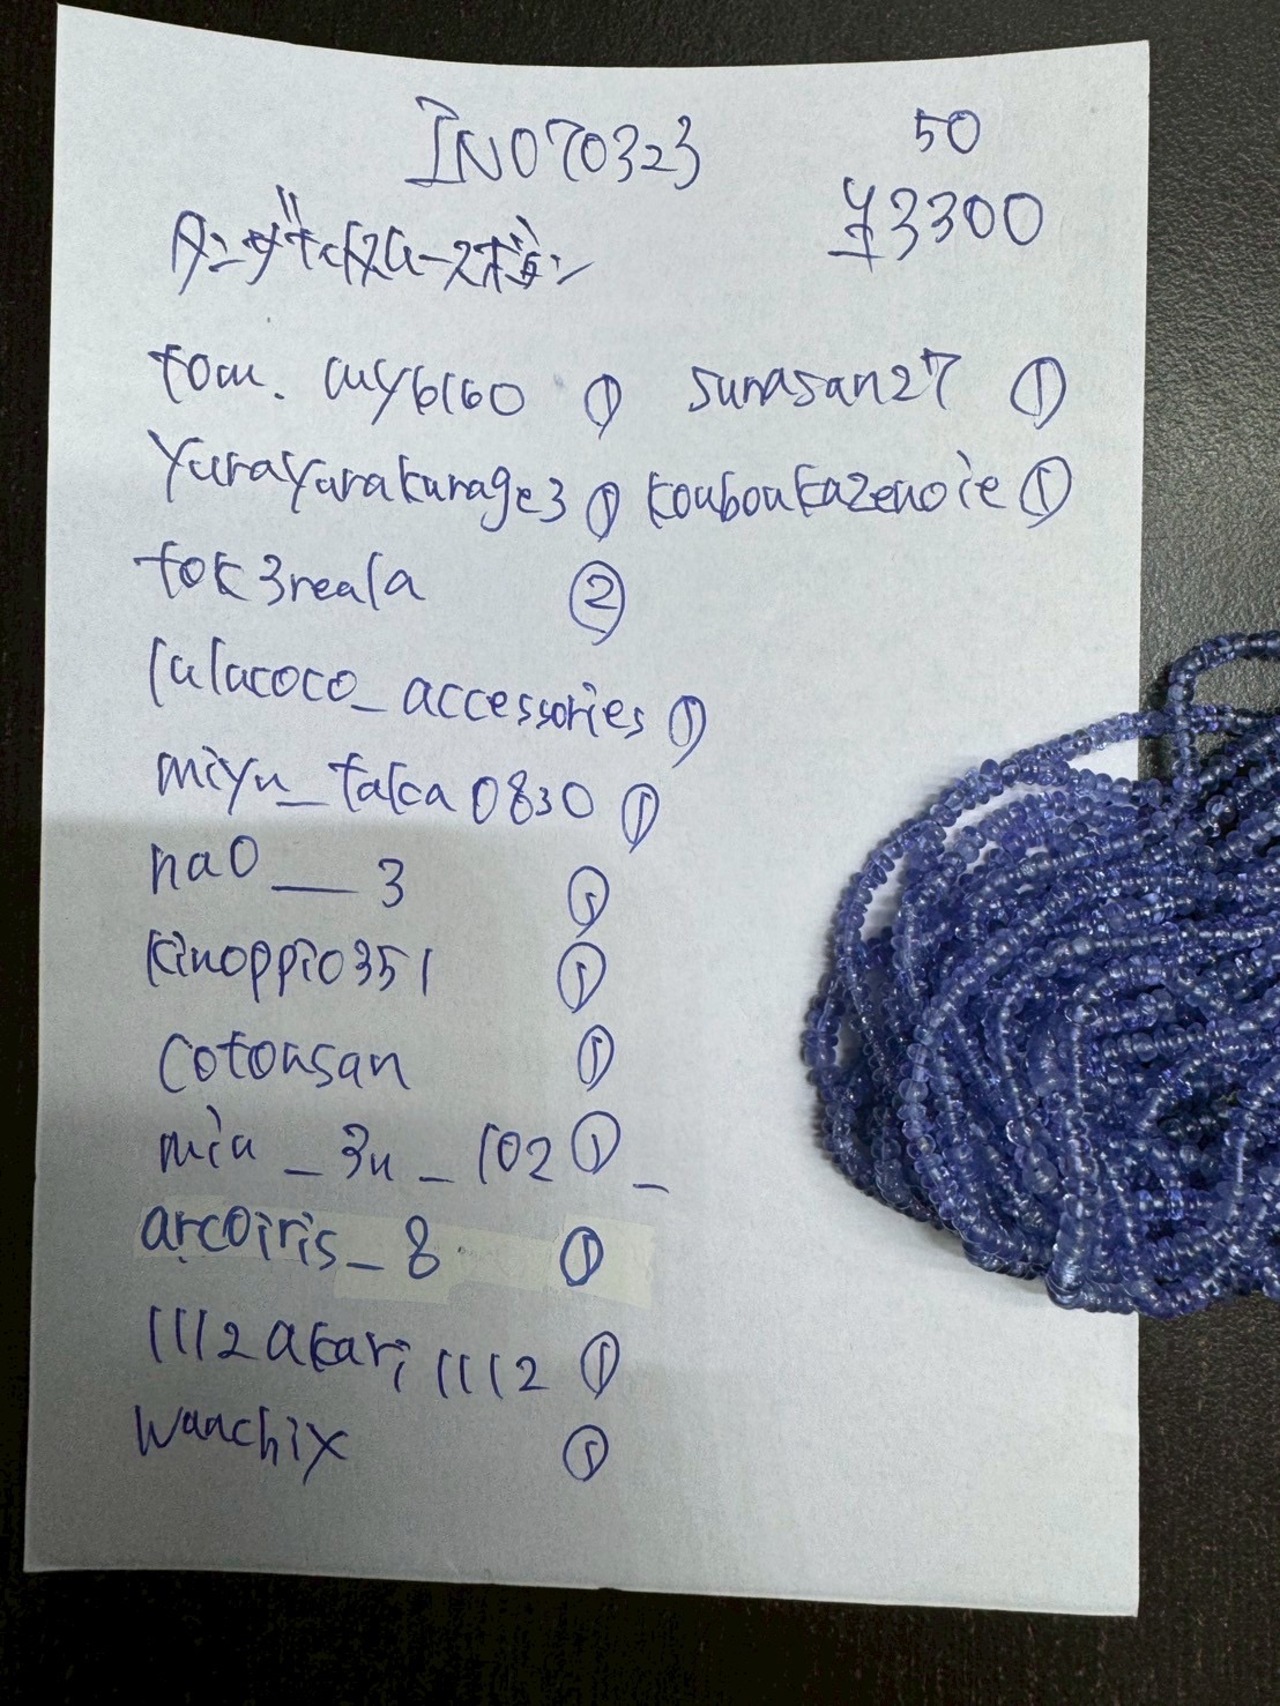 IN070323 50
¥3300
タンザナイト
tom. my6160 ① sunasan27 ①
yurayurakurage3 ① kouboukazenoie ①
tok3reala ②
lulucoco_accessories ①
miyu_taka0830 ①
nao__3 ①
kinoppio351 ①
cotonsan ①
miu_3u_102_ ①
arcoiris_8 ①
1112akari1112 ①
waachix ①